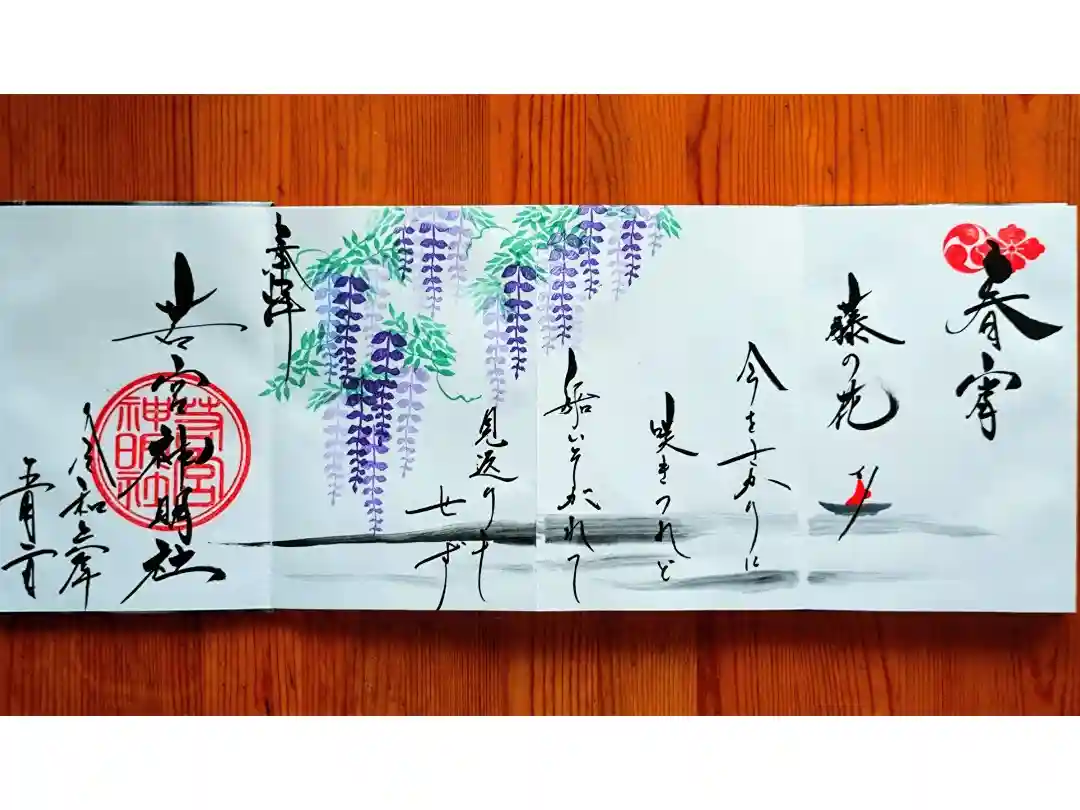 春宵
藤の花
今をさかりに
咲きつれど
船いそがれて
見返りも
せず
奉拝
若宮神明社
若宮
神明社